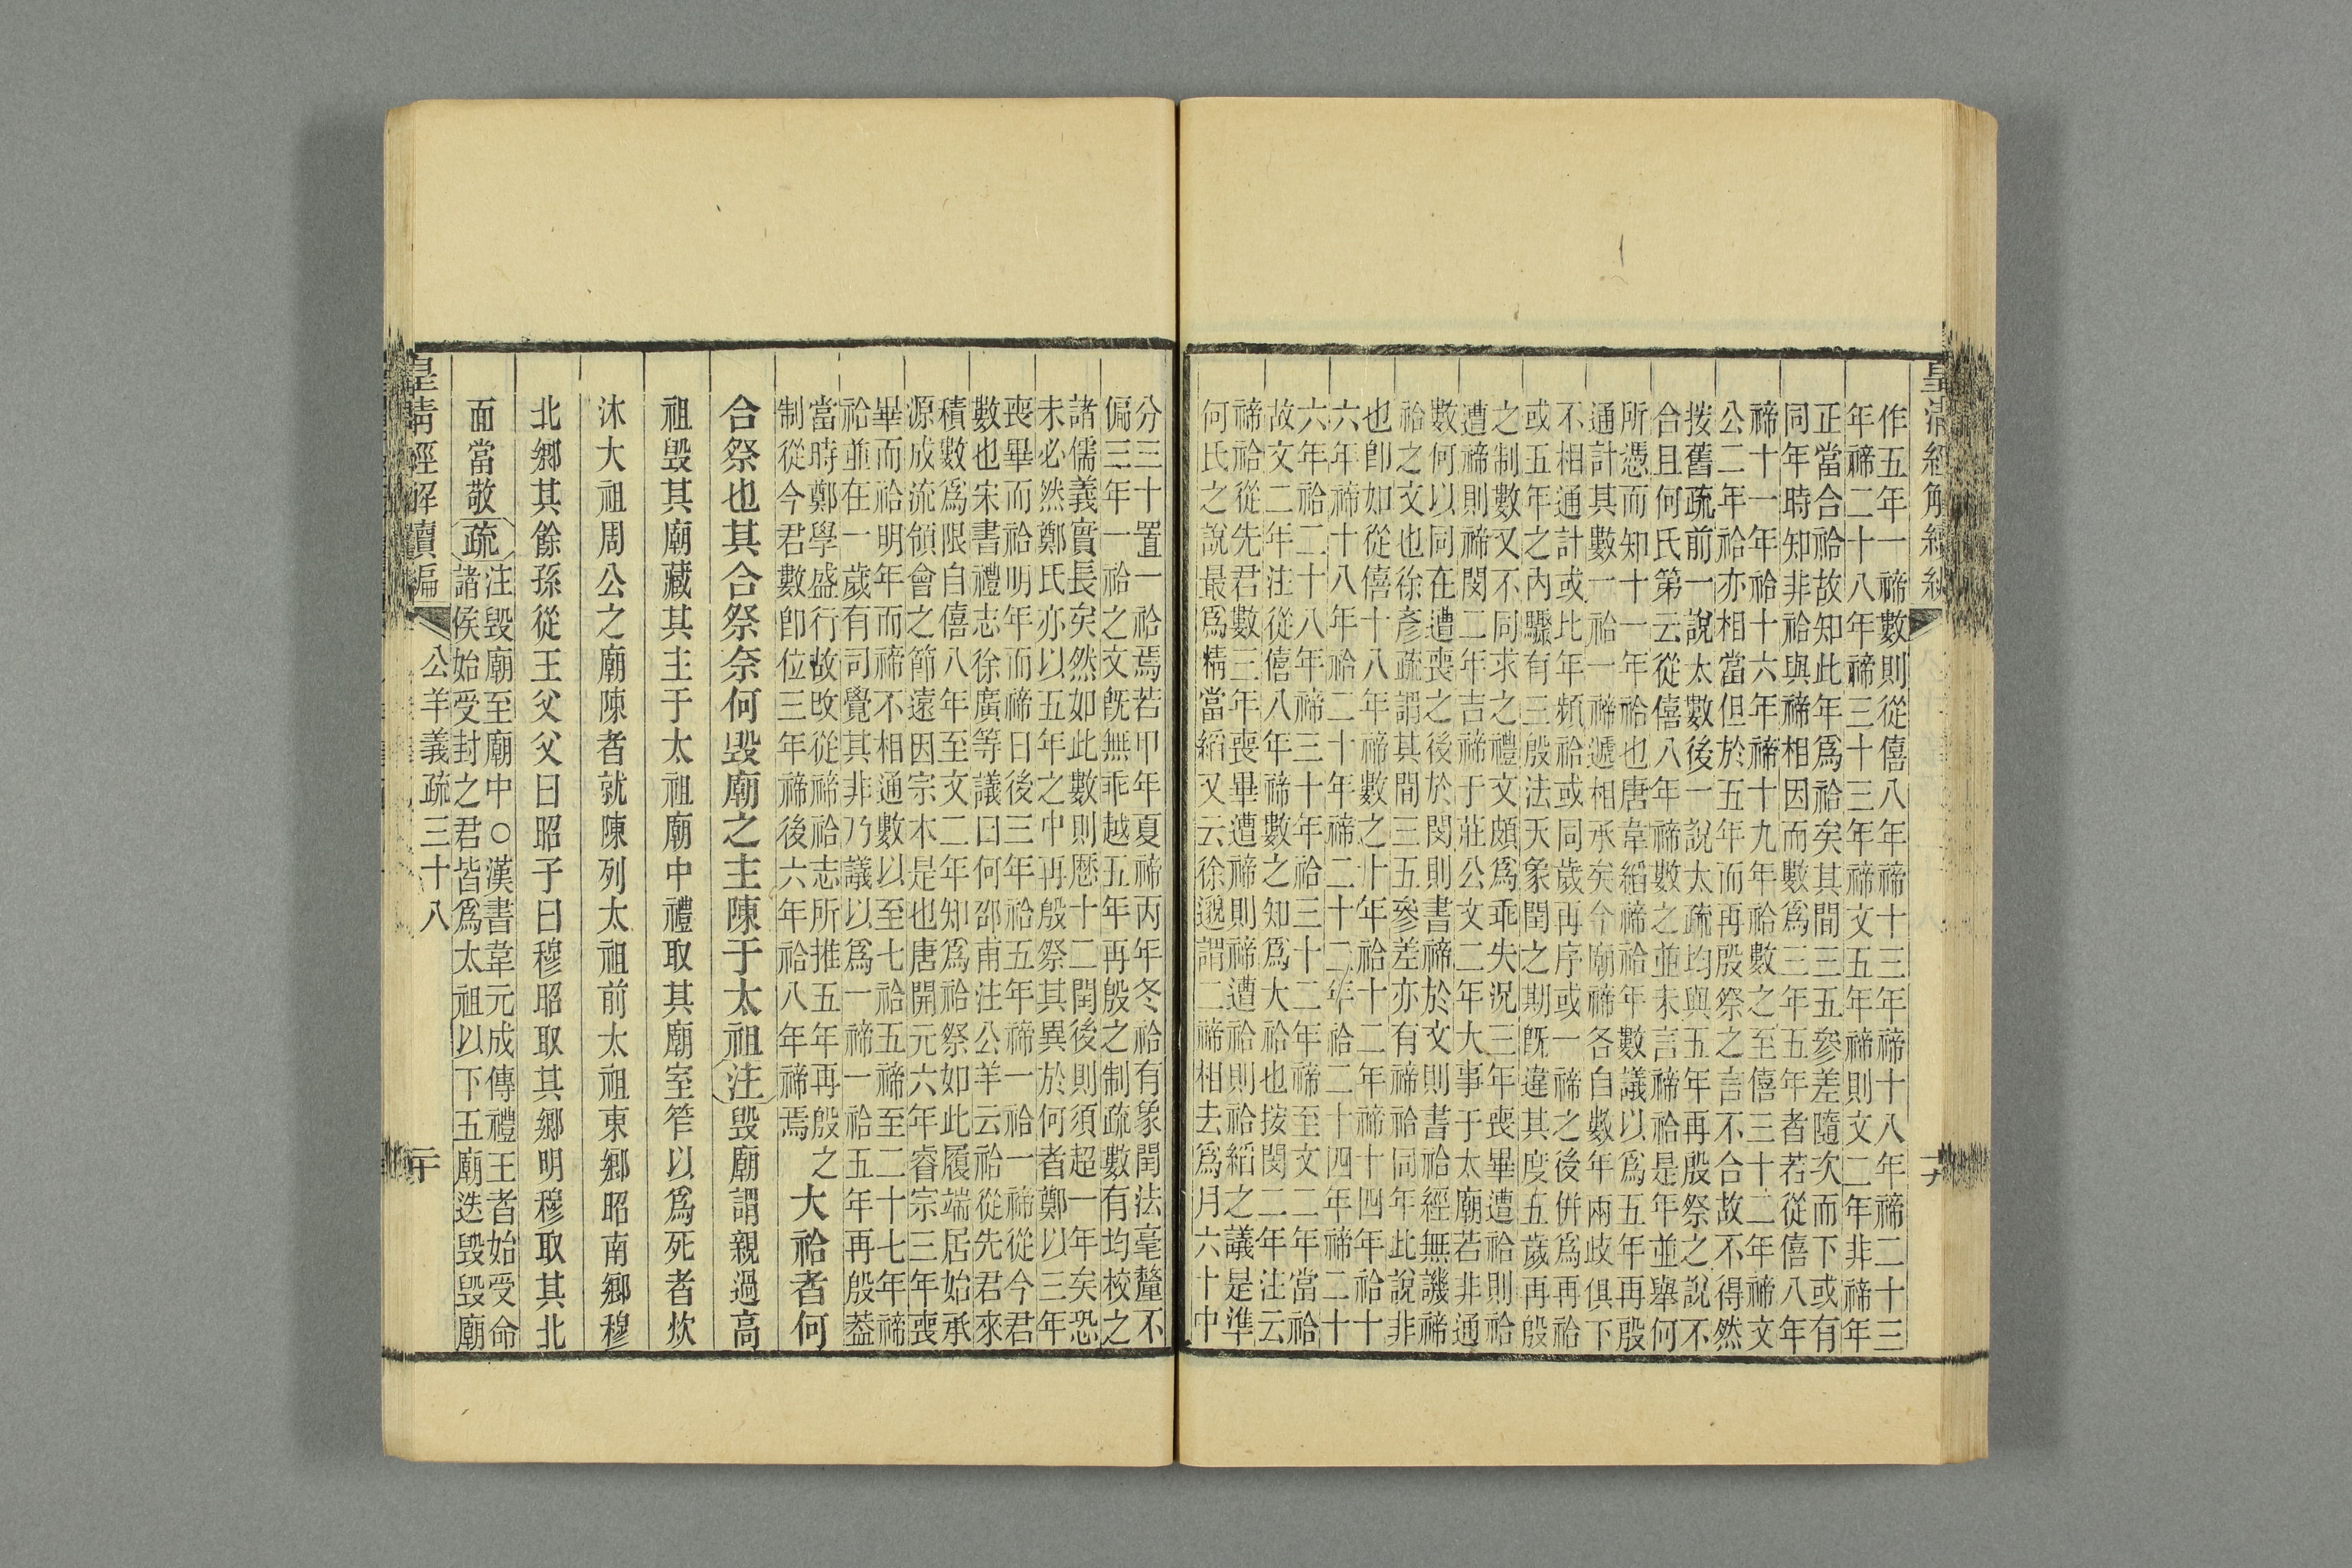 皇清經解續編
作五年一禘數則從僖八年禘十三年禘十八年禘二十三
年禘二十八年禘三十三年禘文五年禘則文二年非禘年
正當合祫故知此年爲祫矣其間三五參差隨次而下或有
同年時知非祫與禘相因而數爲三年五年者若從僖八年
禘十一年祫十六年禘十九年祫數之至僖三十二年禘文
公二年祫亦相當但於五年而再殷祭之言不合故不得然
按舊疏前一說太數後一說太疏均與五年再殷祭之說不
合且何氏第云從僖八年禘數之並未言禘祫是年並舉何
所憑而知十一年祫也唐韋縚禘祫年數議以爲五年再殷
通計其數一祫一禘遞相承矣今廟禘各自數年兩歧俱下
不相通計或比年頻祫或同歲再序或一禘之後併爲再祫
或五年之內驟有三殷法天象閏之期旣違其度五歲再殷
之制數又不同求之禮文頗爲乖失況三年喪畢遭祫則祫
遭禘則禘閔二年吉禘于莊公文二年大事于太廟若非通
數何以同在遭喪之後於閔則書禘於文則書祫經無譏禘
祫之文也徐彥疏謂其間三五參差亦有禘祫同年此說非
也卽如從僖十八年禘數之十年祫十二年禘十四年祫十
六年禘十八年祫二十年禘二十二年祫二十四年禘二十
六年祫二十八年禘三十年祫三十二年禘至文二年當祫
故文二年注從僖八年禘數之知爲大祫也按閔二年注云
禘祫從先君數三年喪畢遭禘則禘遭祫則祫縚之議是準
何氏之說最爲精當縚又云徐邈謂二禘相去爲月六十中
分三十置一祫焉若甲年夏禘丙年冬祫有象閏法毫釐不
偏三年一祫之文旣無乖越五年再殷之制疏數有均校之
諸儒義實長矣然如此數則歷十二閏後則須超一年矣恐
未必然鄭氏亦以五年之中再殷祭其異於何者鄭以三年
喪畢而祫明年而禘日後三年祫五年禘一祫一禘從今君
數也宋書禮志徐廣等議曰何邵南注公羊云祫從先君來
積數爲限自僖八年至文二年知爲祫祭如此履端居始承
源成流領會之節遠因宗本是也唐開元六年睿宗三年喪
畢而祫明年而禘不相通數以至七祫五禘至二十七年禘
祫並在一歲有司覺其非乃議以爲一禘一祫五年再殷葢
當時鄭學盛行故改從禘祫志所推五年再殷之
制從今君數卽位三年禘後六年祫八年禘焉
大祫者何
合祭也其合祭奈何毀廟之主陳于太祖注毀廟謂親過高
祖毀其廟藏其主于太祖廟中禮取其廟室笮以爲死者炊
沐大祖周公之廟陳者就陳列太祖前太祖東鄉昭南鄉穆
北鄉其餘孫從王父父曰昭子曰穆昭取其鄉明穆取其北
面當敬疏
注毀廟至廟中○漢書韋元成傳禮王者始受命
諸侯始受封之君皆爲太祖以下五廟迭毀毀廟
皇清經解續編 公羊義疏三十八 二十